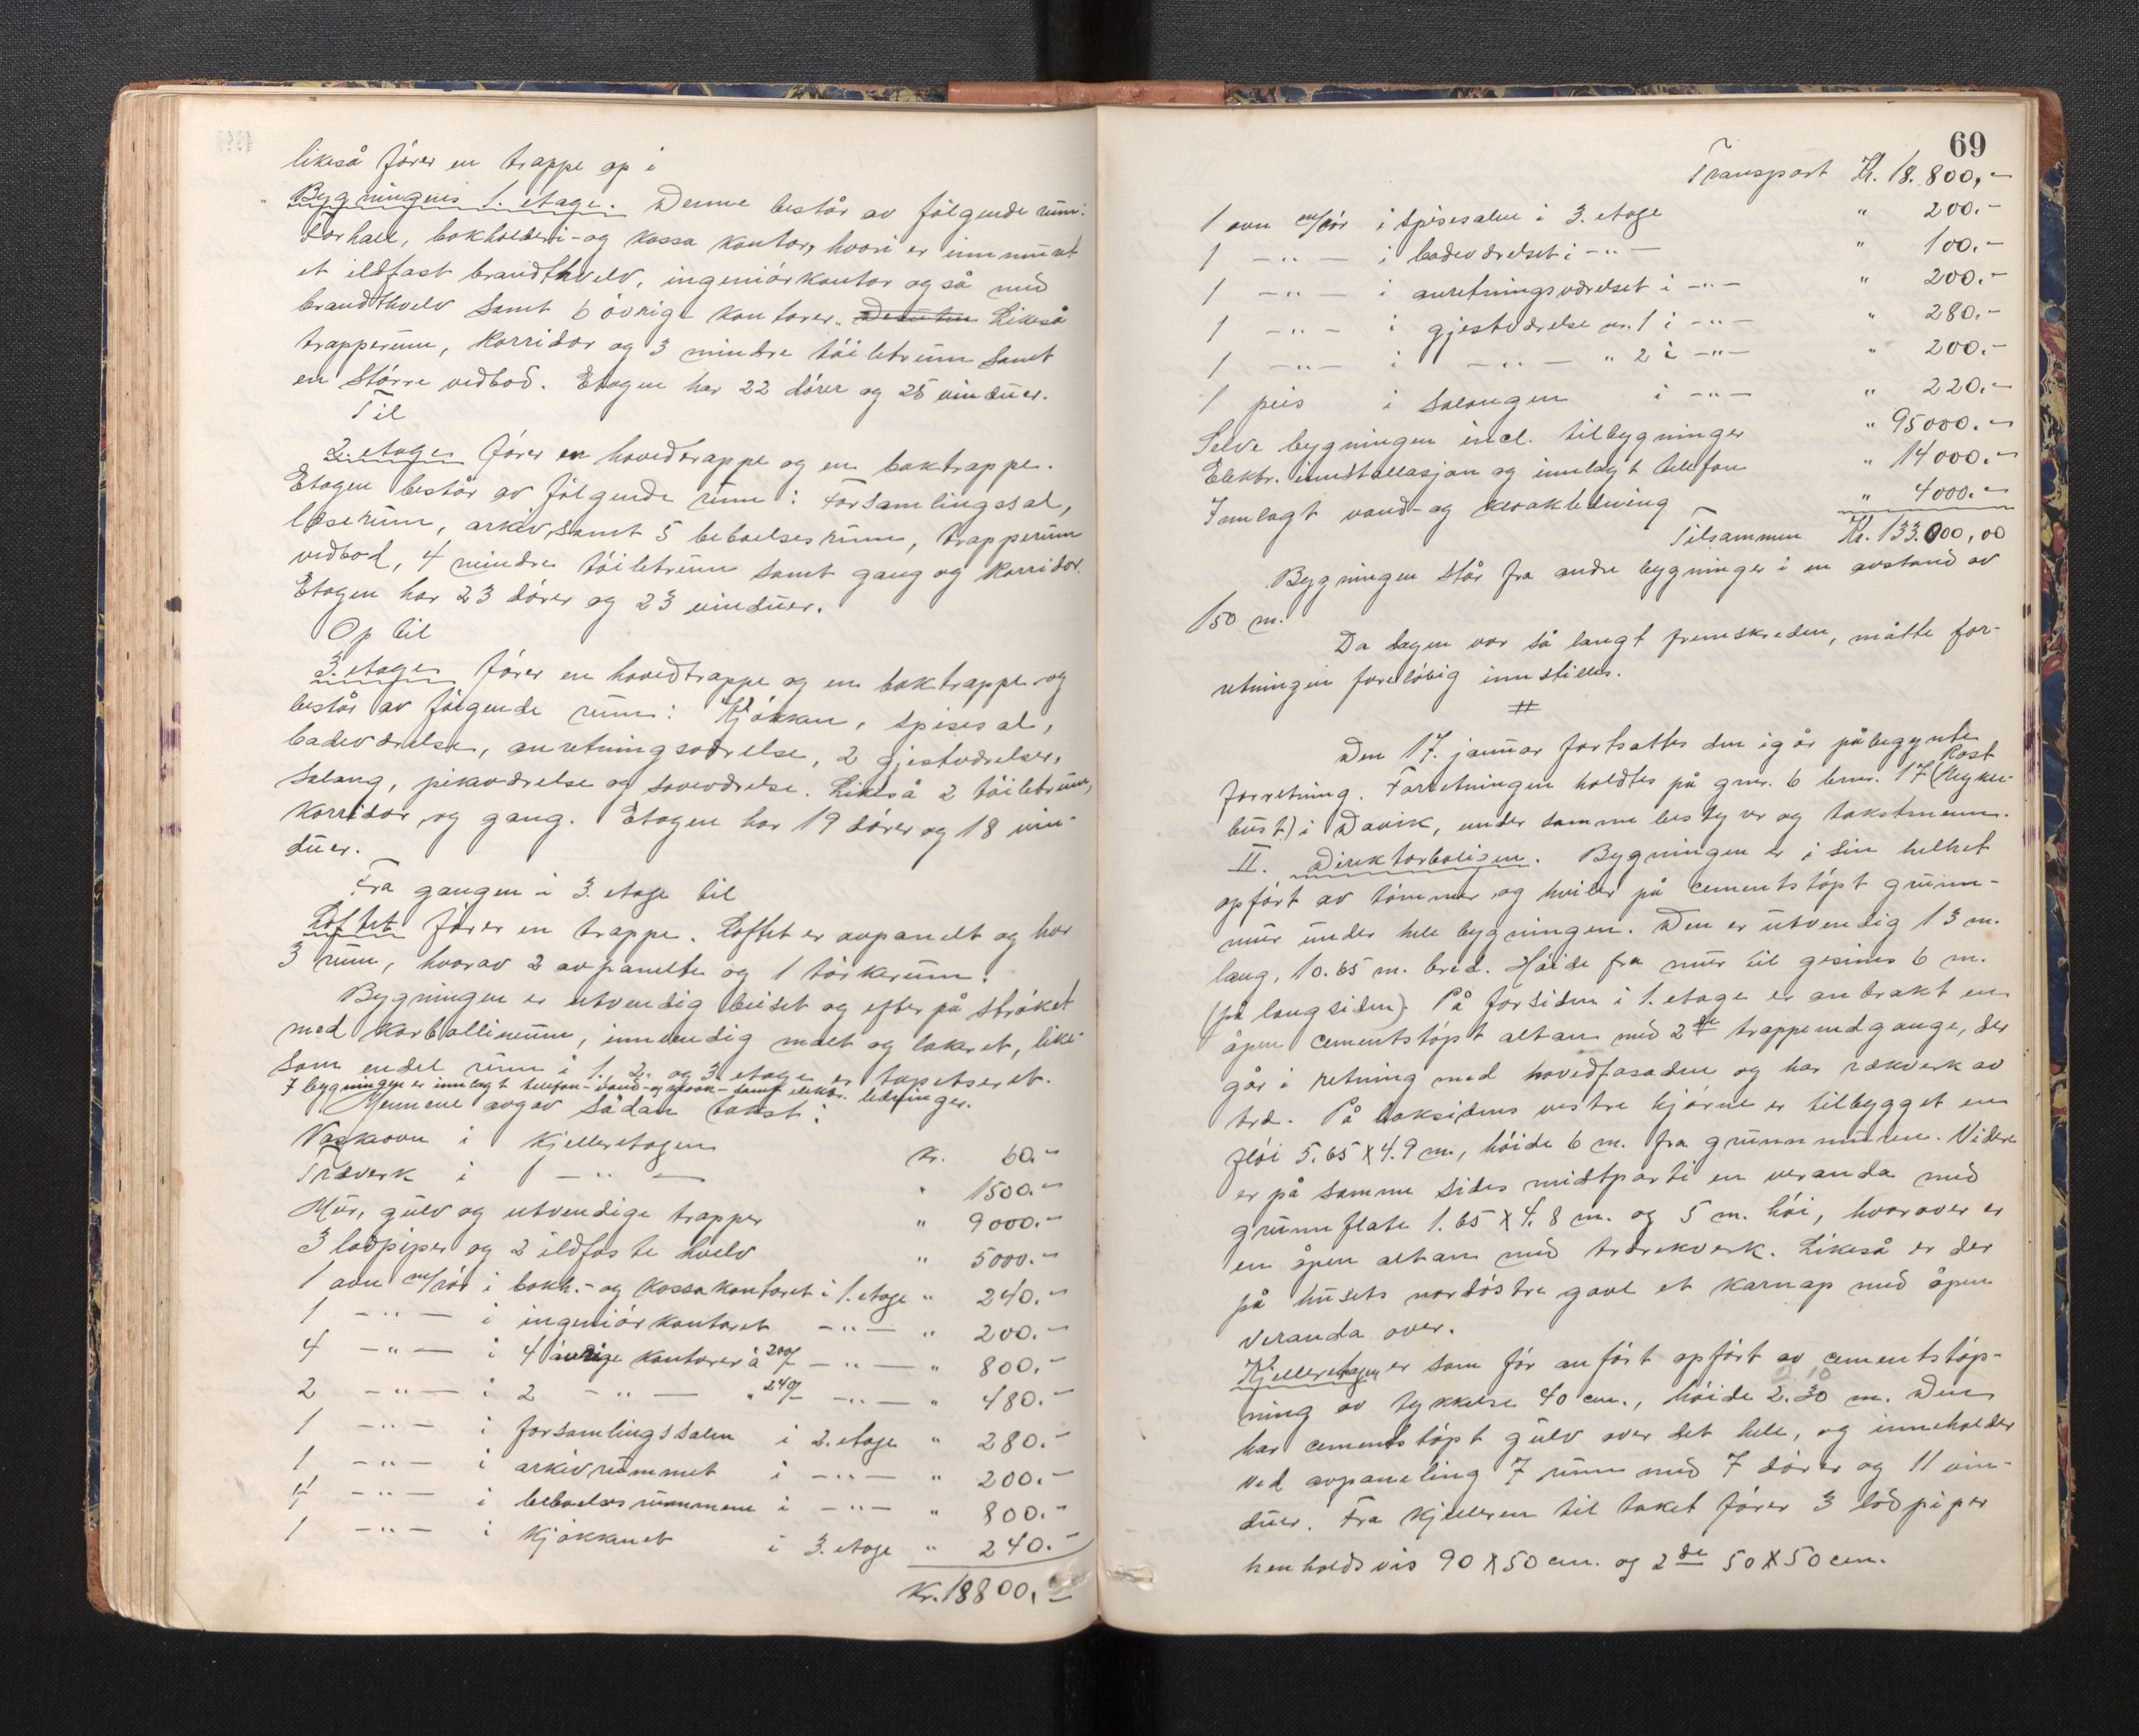 likeså fører en trappe op i
Bygningens 1. etage. Denne består av følgende rum:
Forhall, bokholderi- og kassa kontor, hvori er innmuret
et ildfast brandthvelv, ingeniørkontor også med
brandthvelv samt 6 øvrige kontorer. Desuten Likeså
trapperum, korridor og 3 mindre toiletrum samt
en større vedbod. Etagen har 22 dører og 25 vinduer.
Til
2. etage fører en hovedtrappe og en baktrappe.
Etagen består av følgende rum: Forsamlingssal,
læserum, arkiv, samt 5 beboelsesrum, trapperum
vedbod, 4 mindre toiletrum samt gang og korridor.
Etagen har 23 dører og 23 vinduer.
Op til
3. etage fører en hovedtrappe og en baktrappe og
består av følgende rum: Kjøkken, spisesal,
badeværelse, anretningsværelse, 2 gjesteværelser,
salong, pikeværelse og soveværelse. Likeså 2 toiletrum,
korridor og gang. Etagen har 19 dører og 18 vin-
duer.
Fra gangen i 3. etage til
Loftet fører en trappe. Loftet er avpanelt og har
3 rum, hvorav 2 avpanelte og 1 tørkerum.
Bygningen er utvendig beiset og efter på strøket
med karbollineum, innvendig malt og lakeret, like-
som endel rum i 1. 2. og 3. etage er tapetseret.
I bygningen er innlagt telefon- vand- og kloak- samt elektr. ledninger.
Mennene avgav sådan takst:
Vaskeovn i kjelleretagen Kr. 60.-
Træverk i - " - " 1500.-
Mur, gulv og utvendige trapper " 9000.-
3 lodpiper og 2 ildfaste hvelv " 5000.-
1 ovn m/rør i bokh.- og kassakontoret i 1. etage " 240.-
1 - " - i ingeniørkontoret - " - " 200.-
4 - " - i 4 øvrige kontorer à 200/- - " - " 800.-
2 - " - i 2 - " - " 240/- - " - " 480.-
1 - " - i forsamlingssalen i 2. etage " 280.-
1 - " - i arkivrummet i - " - " 200.-
4 - " - i beboelsesrummene i - " - " 800.-
1 - " - i kjøkkenet i 3. etage " 240.-
Kr. 18800.-
69
Transport Kr. 18.800,-
1 ovn m/rør i spisesalen i 3. etage " 200.-
1 - " - i badeværelset i - " - " 100.-
1 - " - i anretningsværelset i - " - " 200.-
1 - " - i gjesteværelse nr. 1 i - " - " 280.-
1 - " - i - " - " 2 i - " - " 200.-
1 peis i salongen i - " - " 220.-
Selve bygningen incl. tilbygninger " 95000.-
Elektr. innstallasjon og innlagt telefon " 14000.-
Innlagt vand- og kloakledning " 4000.-
Tilsammen Kr. 133.000,00
Bygningen står fra andre bygninger i en avstand av
150 m.
Da dagen var så langt fremskreden, måtte for-
retningen foreløbig innstilles.
#
Den 17. januar fortsattes den igår påbegynte
forretning. Forretningen holdtes på gnr. 6 brnr. 17 (
) i Davik, under samme bestyrer og takstmenn.
II. Direktorboligen. Bygningen er i sin helhet
opført av tømmer og hviler på cementstøpt grunn-
mur under hele bygningen. Den er utvendig 13 m.
lang, 10.65 m. bred. Høide fra mur til gesims 6 m.
(på langsiden). På forsiden i 1. etage er anbrakt en
åpen cementstøpt altan med 2de trappenedgange, der
går i retning med hovedfasaden og har rekverk av
træ. På baksidens vestre hjørne er tilbygget en
fløi 5.65 X 4.9 m., høide 6 m. fra grunnmuren. Videre
er på samme sides midtparti en veranda med
grunnflate 1.65 X 4.8 m. og 5 m. høi, hvorover er
en åpen altan med trærekverk. Likeså er der
på husets nordøstre gavl et karnap med åpen
veranda over.
Kjelleretagen er som før anført opført av cementstøp-
ning av tykkelse 40 cm., høide 2.30 m. Den
har cementstøpt gulv over det hele, og inneholder
ved avpaneling 7 rum med 7 dører og 11 vin-
duer. Fra kjelleren til taket fører 3 lodpiper
henholdsvis 90 X 50 cm. og 2de 50 X 50 cm.